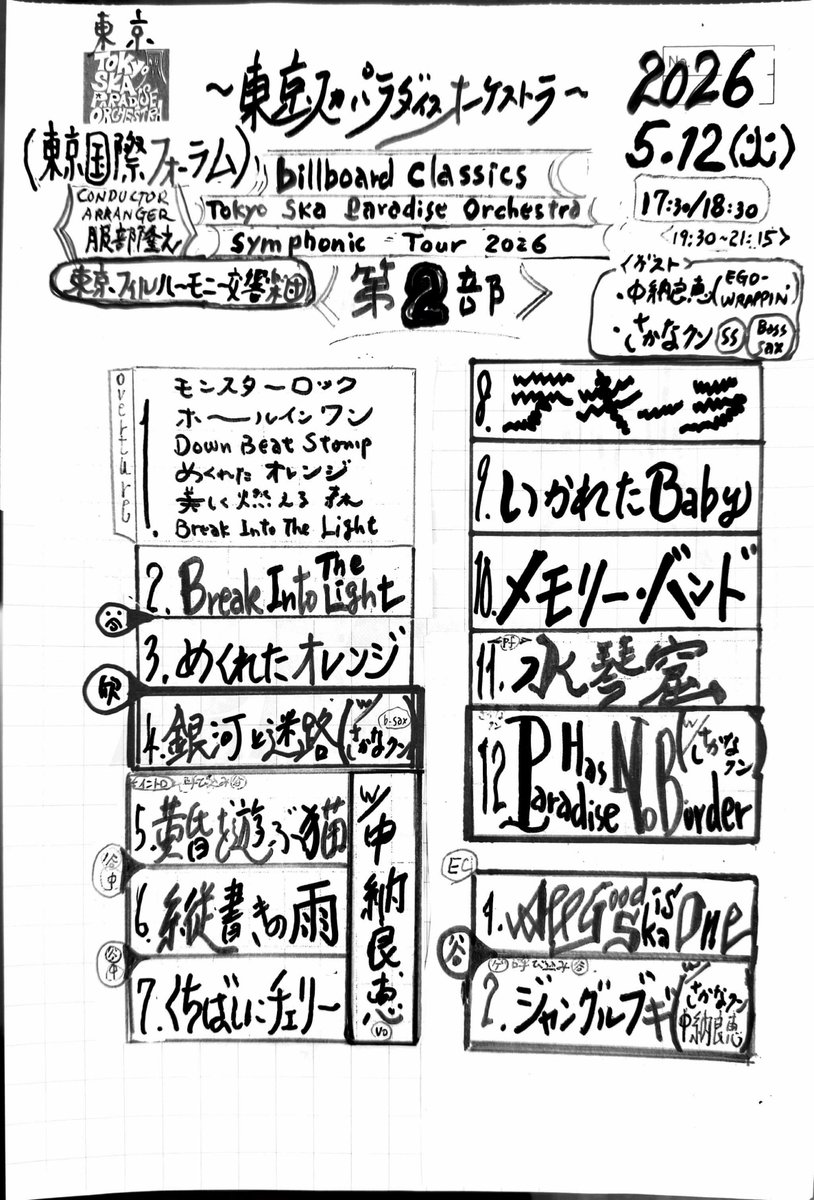 東京
TOKYO
SKA
PARADISE
ORCHESTRA
〜東京スカパラダイスオーケストラ〜
2026
5.12(火)
(東京国際フォーラム)
billboard Classics
Tokyo Ska Paradise Orchestra
Symphonic Tour 2026
CONDUCTOR
ARRANGER
服部隆之
17:30/18:30
<19:30~21:15>
東京フィルハーモニー交響楽団
第2部
<ゲスト>
・中納良恵(EGO-WRAPPIN')
・さかなクン SS Bass Sax
overture
1.
モンスターロック
ホールインワン
Down Beat Stomp
めくれたオレンジ
美しく燃える森
Break Into The Light
2. Break Into The Light
谷
3. めくれたオレンジ
欣
4. 銀河と迷路 (w/さかなクン b.sax)
イントロ 呼び込み 谷
5. 黄昏を遊ぶ猫
谷中
6. 縦書きの雨
谷中
7. くちばしにチェリー
w/中納良恵 vo
8.
9. いかれたBaby
10. メモリー・バンド
<Pf>
11. 水琴窟
12. Paradise Has No Border (w/さかなクン)
EC
1. All Good Ska is One
谷
呼び込み 谷
2. ジャングルブギ (w/さかなクン 中納良恵)